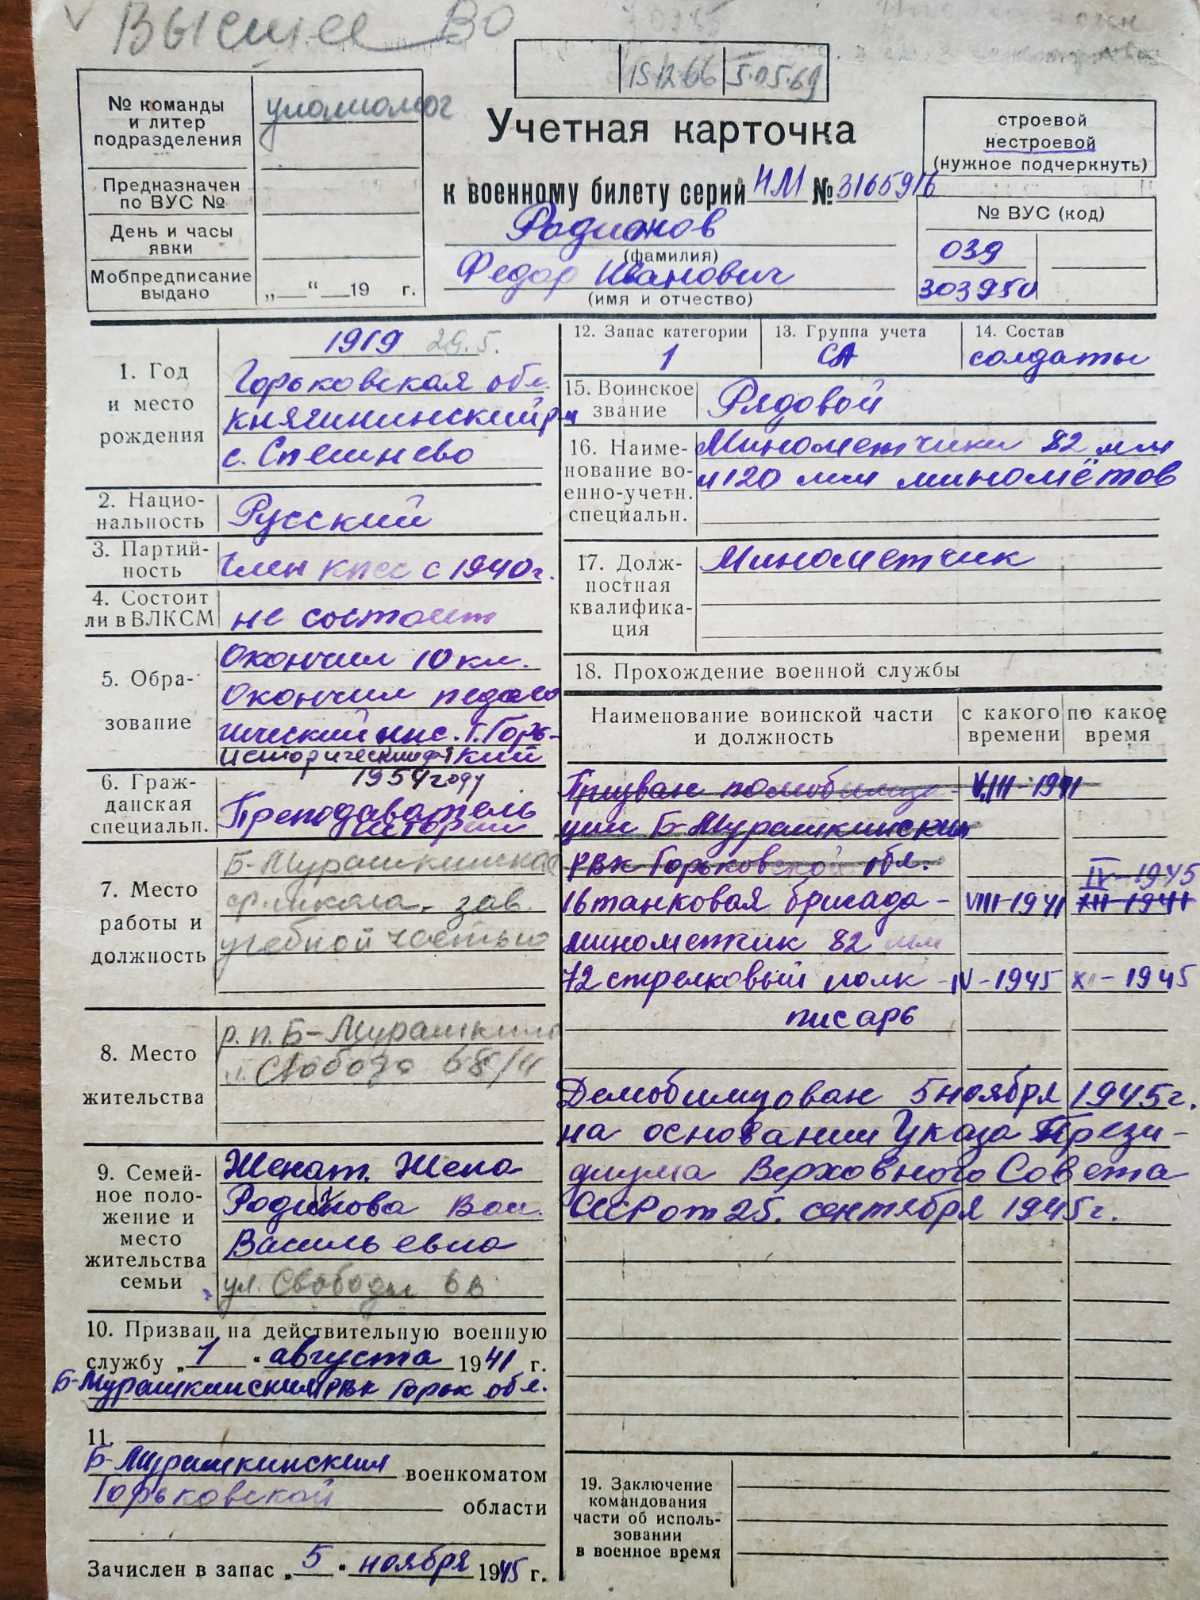 Высшее ВО
15.12.66 5.05.69
№ команды
и литер
подразделения
Предназначен
по ВУС №
День и часы
явки
Мобпредписание
выдано
„__“ __19 г.
Учетная карточка
к военному билету серий НМ № 3165916
Родионов
(фамилия)
Федор Иванович
(имя и отчество)
строевой
нестроевой
(нужное подчеркнуть)
№ ВУС (код)
039
303950
1. Год
и место
рождения
1919 29.5.
Горьковская обл.
Княгининский р-н
с. Спешнево
2. Нацио-
нальность
Русский
3. Партий-
ность
Член КПСС с 1940г.
4. Состоит
ли в ВЛКСМ
не состоит
5. Обра-
зование
Окончил 10 кл.
Окончил педаго
гический инс. г. Горь-
исторический ф-т кий
1954 году
6. Граж-
данская
специальн.
Преподаватель
истории
7. Место
работы и
должность
Б-Мурашкинская
ср. школа, зав.
учебной частью
8. Место
жительства
р.п. Б-Мурашкино
9. Семей-
ное поло-
жение и
место
жительства
семьи
Женат. Жена
Родионова
Васильевна
ул. Свободы
10. Призван на действительную военную
службу „1“ августа 1941 г.
Б-Мурашкинским РВК Горьк обл.
11.
Б-Мурашкинским военкоматом
Горьковской области
Зачислен в запас „5“ ноября 1945 г.
12. Запас категории
1
13. Группа учета
СА
14. Состав
солдаты
15. Воинское
звание
Рядовой
16. Наиме-
нование во-
енно-учетн.
специальн.
Минометчики 82 мм
и 120 мм миномётов
17. Долж-
ностная
квалифика-
ция
Минометчик
18. Прохождение военной службы
Наименование воинской части
и должность
с какого
времени
по какое
время
Призван по мобилиза VIII-1941
ции Б-Мурашкинским
РВК Горьковской обл.
IV-1945
16 танковая бригада - VIII-1941 XII-1941
минометчик 82 мм
72 стрелковый полк - IV-1945 XI-1945
писарь
Демобилизован 5 ноября 1945г.
на основании Указа Прези-
диума Верховного Совета
СССР от 25. сентября 1945г.
19. Заключение
командования
части об исполь-
зовании
в военное время